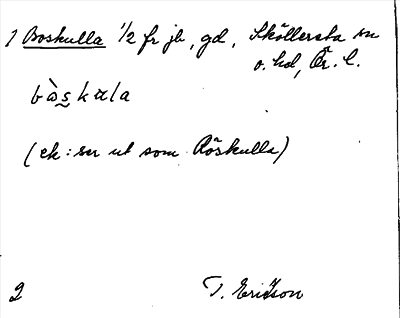 1 Boskulla 1/2 fr jb, gd, Sköllersta sn
o. hd, Ör. l.
bɷ̀s̬kɷla
(ek: ser ut som Röskulla)
2 T. Ericsson